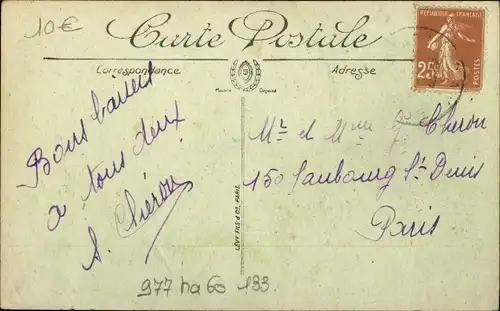 10€
Carte Postale
Correspondance
Adresse
RÉPUBLIQUE FRANÇAISE
25c
POSTES
Modèle Déposé
Bons baisers
à tous deux
S. Chéron
Mr et Mme G. Cheron
150 Faubourg St Denis
Paris
LÉVY FILS & Cie, PARIS
977 ha 60 133